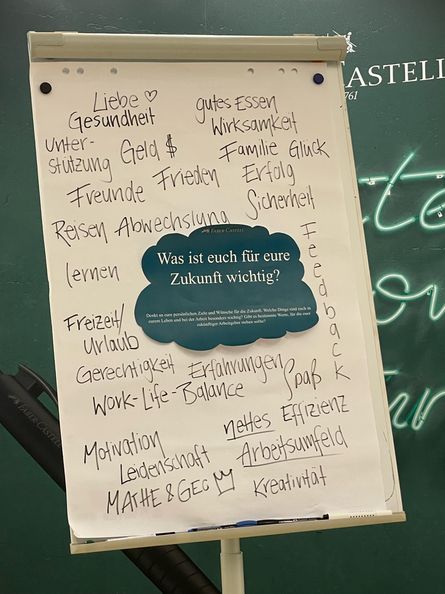 CASTELL
1761
Liebe ♡
gutes Essen
Gesundheit
Wirksamkeit
Unter-
stützung
Geld $
Familie
Glück
Freunde
Frieden
Erfolg
Sicherheit
Reisen
Abwechslung
Feedback
lernen
FABER-CASTELL
Was ist euch für eure
Zukunft wichtig?
Denkt an eure persönlichen Ziele und Wünsche für die Zukunft. Welche Dinge sind euch in
eurem Leben und bei der Arbeit besonders wichtig? Gibt es bestimmte Werte, für die euer
zukünftiger Arbeitgeber stehen sollte?
Freizeit/
Urlaub
Gerechtigkeit
Erfahrungen
Spaß
Work-Life-Balance
Motivation
nettes
Effizienz
Leidenschaft
Arbeitsumfeld
MATHE & GEO
Kreativität
FABER-CASTELL